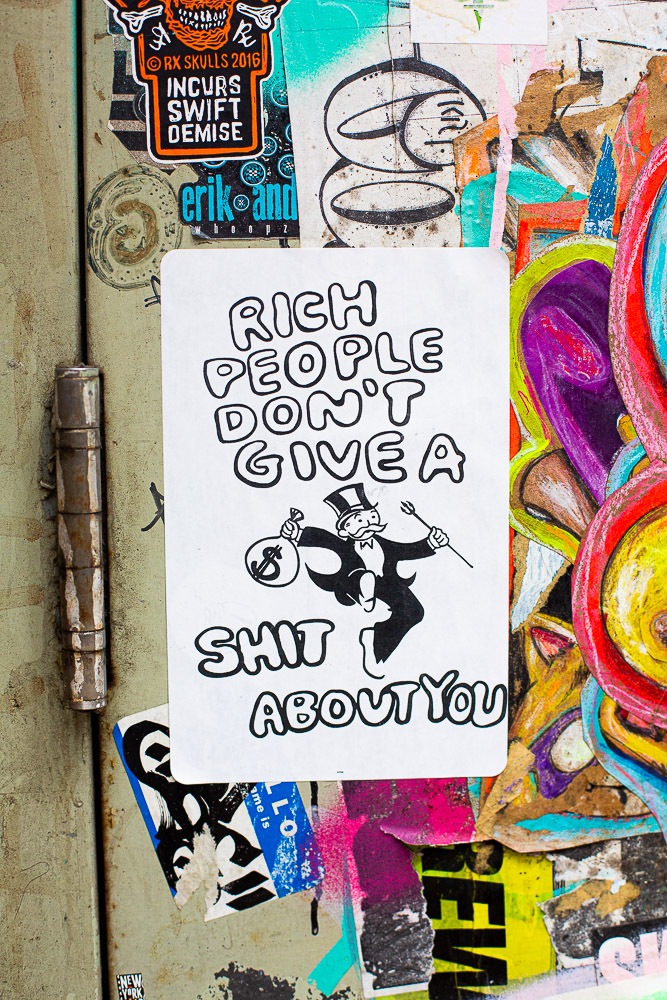 RX
© RX SKULLS 2016
INCURS
SWIFT
DEMISE
erik and
whoopz
RICH
PEOPLE
DON'T
GIVE A
$
SHIT
ABOUT YOU
LLO
me is
REW
NEW
YORK